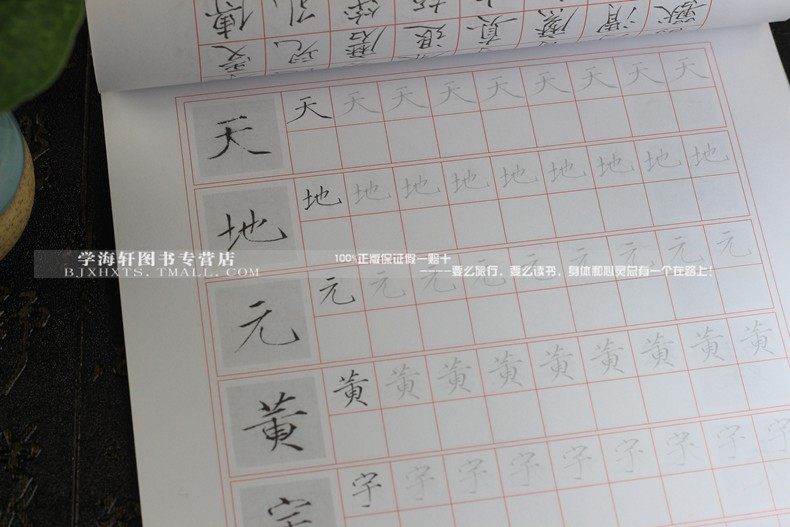 天 天 天 天 天 天 天 天 天 天
地 地 地 地 地 地 地 地 地 地
学海轩图书专营店
BJXHXTS.TMALL.COM
100%正版保证假一赔十
-----要么旅行，要么读书，身体和心灵总有一个在路上！
元 元 元 元 元 元 元 元 元 元
黄 黄 黄 黄 黄 黄 黄 黄 黄 黄
字 字 字 字 字 字 字 字 字 字